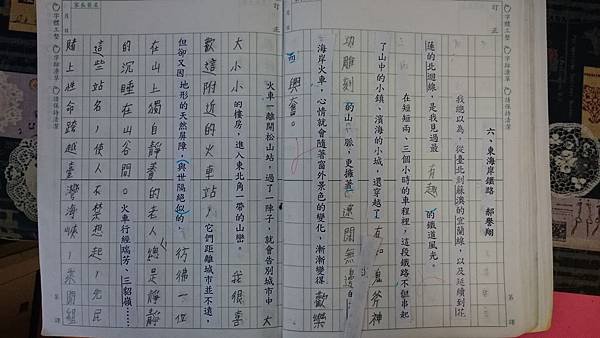 訂正
月 日
六、東海岸鐵路 郝譽翔
我總以為，從臺北到蘇澳的宜蘭線，以及延續到花
蓮的北迴線，是我見過最有趣的鐵道風光。
在短短兩、三個小時的車程裡，這段鐵路不但串起
了山中的小鎮、濱海的小城，還穿越了有如鬼斧神
功雕刻的山脈，更擁著遼闊無邊的
海岸火車，心情就會隨著窗外景色的變化，漸漸變得歡樂
而興奮。
訂正
月 日
火車一離開松山站，過了一陣子，就會告別城市中大
大小小的樓房，進入東北角一帶的山巒。我很喜
歡這附近的火車站，它們距離城市並不遠，
但卻又因地形的天然屏障，(與世隔絕似的，彷彿一位
在山上獨自靜養的老人，總是靜靜
的沉睡在山谷間。火車行經瑞芳、三貂嶺……
這些站名，使人不禁想起，先民
賭上性命跨越臺灣海峽，來開墾
家長簽名
第 課
字體工整
請保持清潔